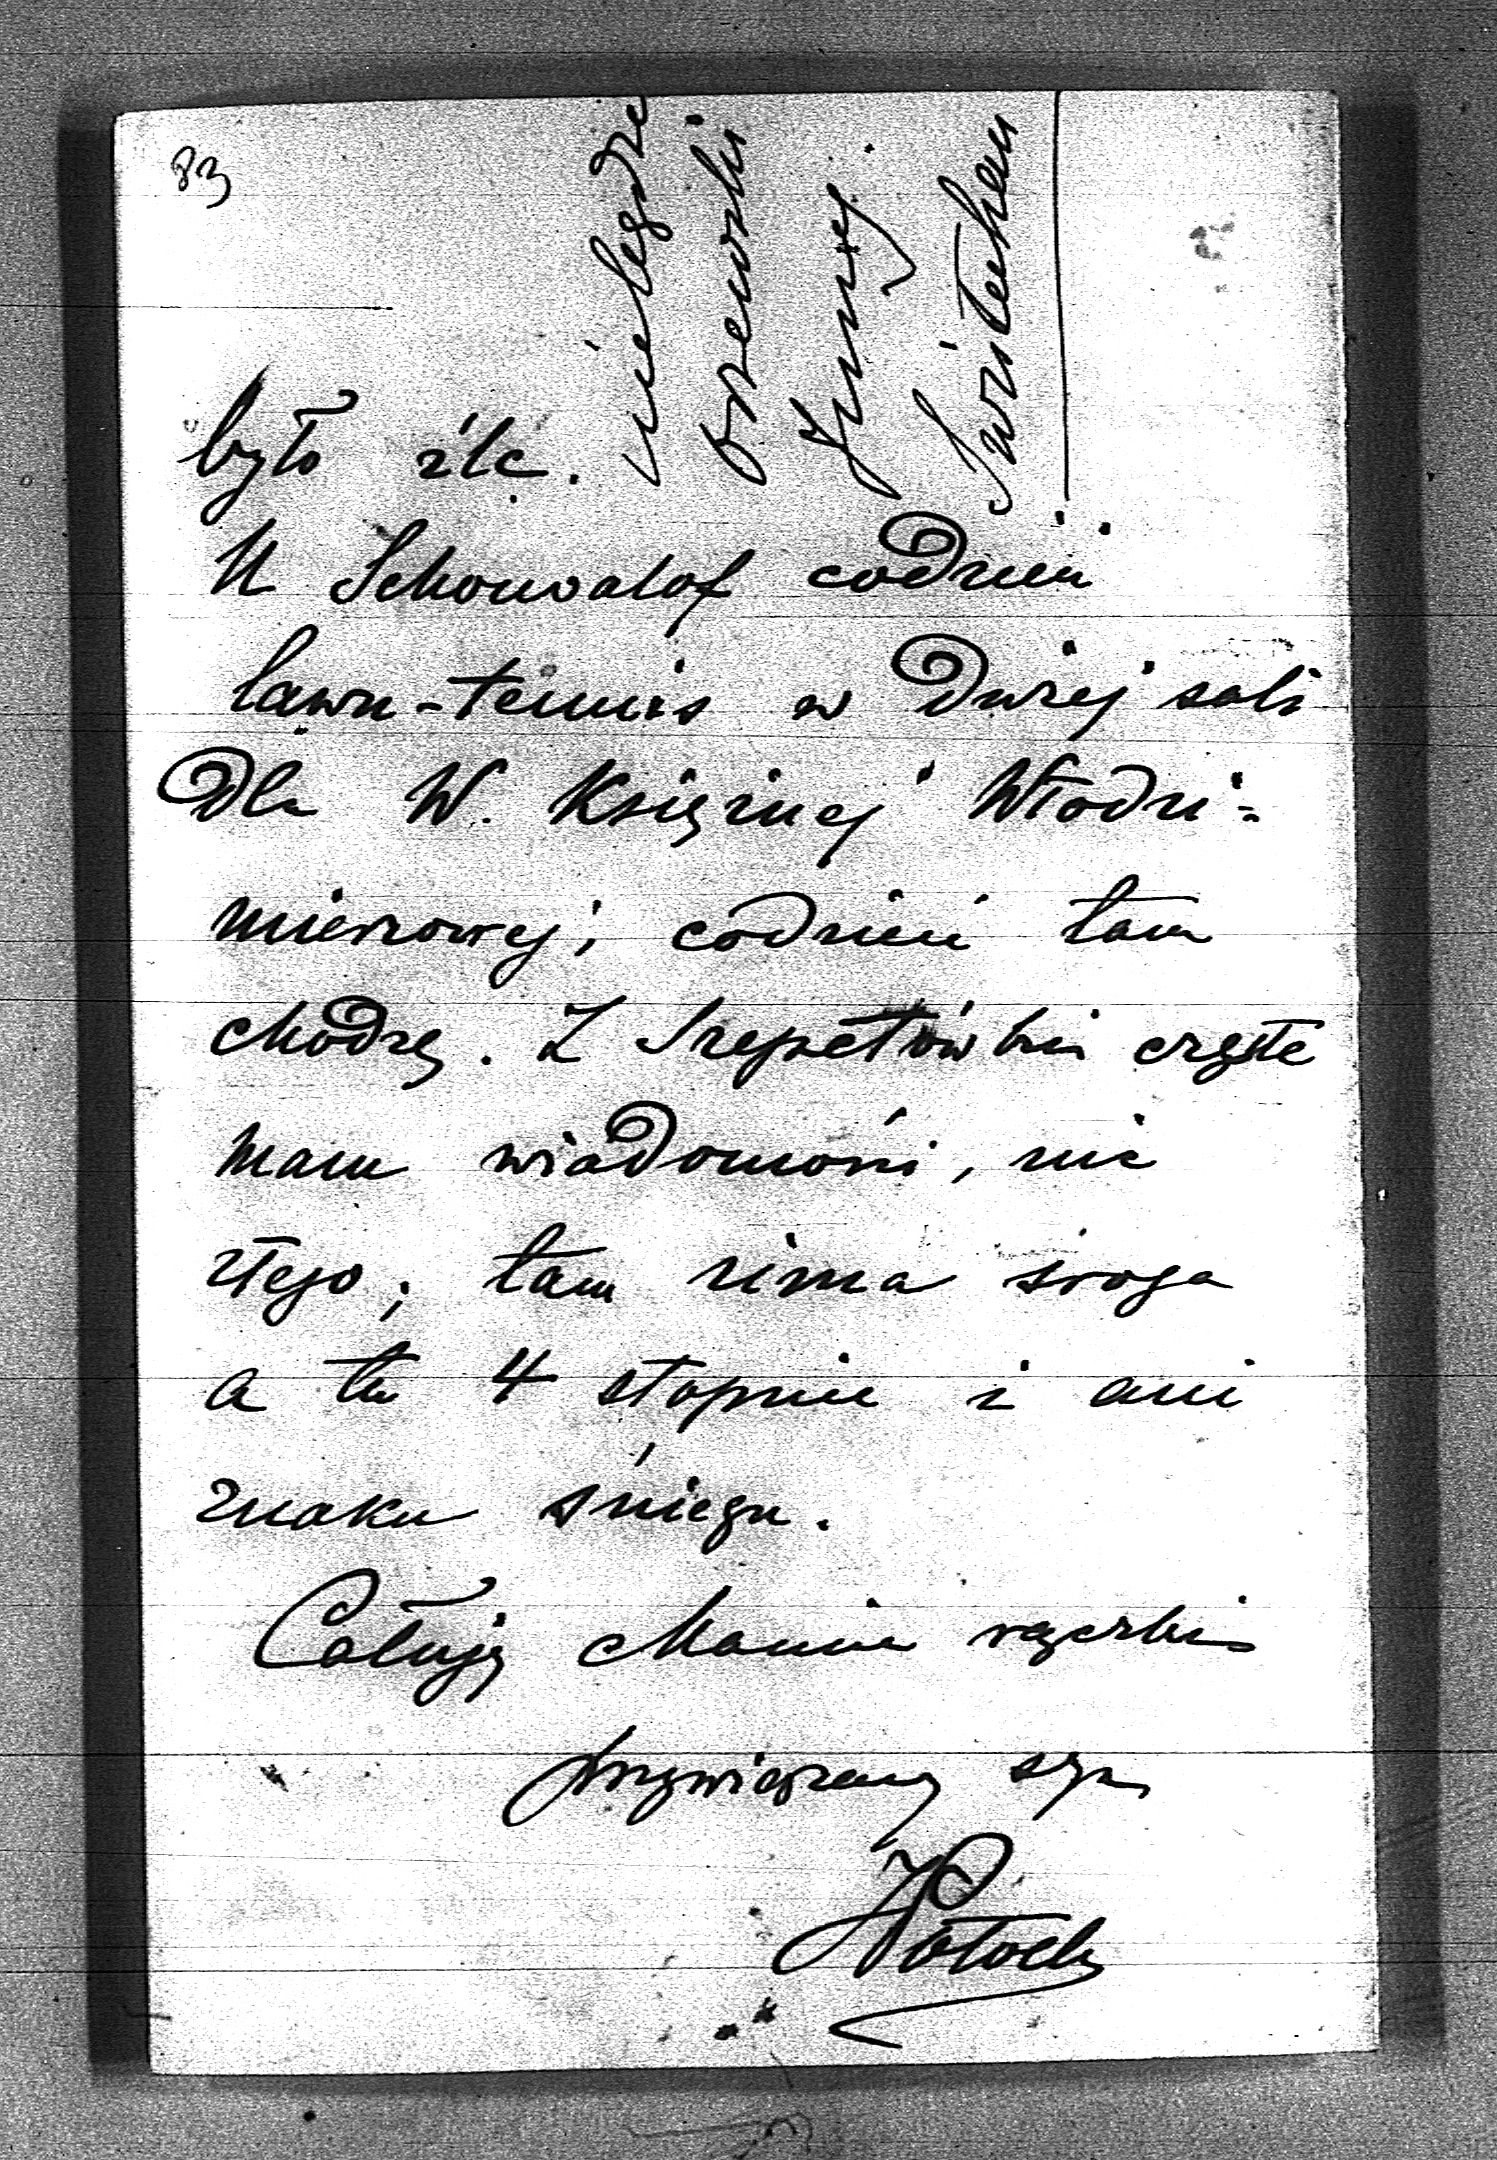 83
było źle.
U Schouvalof codzień
lawn-tennis w Dużej sali
dla W. Księżnej Włodzi-
mierzowej; codzień tam
chodzę. Z Szepetówki częste
mam wiadomości, nic
złego; tam zima sroga
a tu 4 stopnie i ani
znaku śniegu.
Całuję Mamie rączki
przywiązany syn
JPotocki